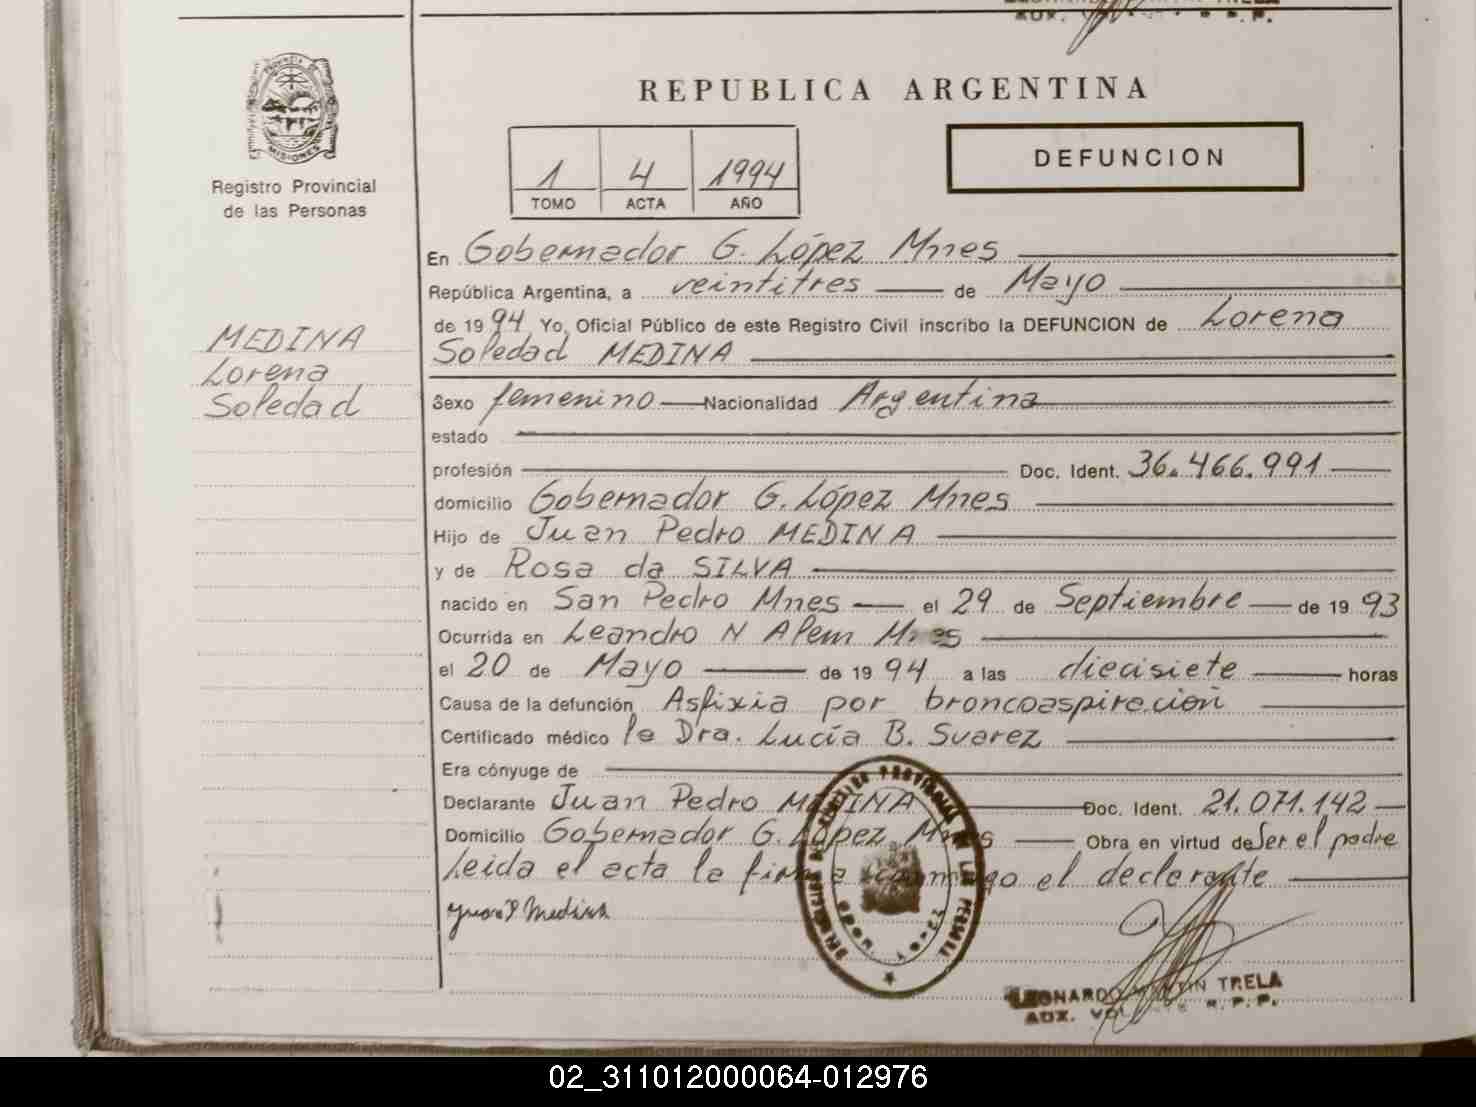 AUX.
PROVINCIA DE
MISIONES
Registro Provincial
de las Personas
REPUBLICA ARGENTINA
1 4 1994
TOMO ACTA AÑO
DEFUNCION
MEDINA
Lorena
Soledad
En Gobernador G. López Mnes
República Argentina, a veintitres de Mayo
de 1994 Yo, Oficial Público de este Registro Civil inscribo la DEFUNCION de Lorena
Soledad MEDINA
Sexo femenino Nacionalidad Argentina
estado
profesión Doc. Ident. 36.466.991
domicilio Gobernador G. López Mnes
Hijo de Juan Pedro MEDINA
y de Rosa da SILVA
nacido en San Pedro Mnes el 29 de Septiembre de 1993
Ocurrida en Leandro N Alem Mnes
el 20 de Mayo de 1994 a las diecisiete horas
Causa de la defunción Asfixia por broncoaspiración
Certificado médico la Dra. Lucía B. Suarez
Era cónyuge de
Declarante Juan Pedro MEDINA Doc. Ident. 21.071.142
Domicilio Gobernador G. López Mnes Obra en virtud de Ser el padre
Leida el acta la firma conmigo el declarante
Juan P. Medina
LEONARDO MARTIN TRELA
AUX. R.P.P.
02_311012000064-012976